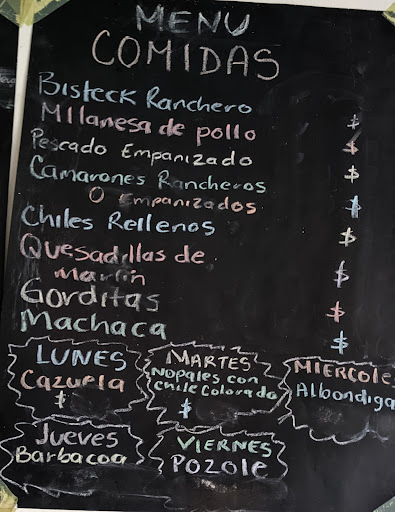 MENU
COMIDAS
BisTeck Ranchero $
MIlanesa de pollo $
Pescado Empanizado $
Camarones Rancheros
O Empanizados $
Chiles Rellenos $
Quesadillas de
Marlin $
Gorditas $
Machaca $
LUNES
Cazuela
$
MARTES
Nopales con
chile Colorado
$
MIERCOLE
Albondiga
Jueves
Barbacoa
VIERNES
POZOLE